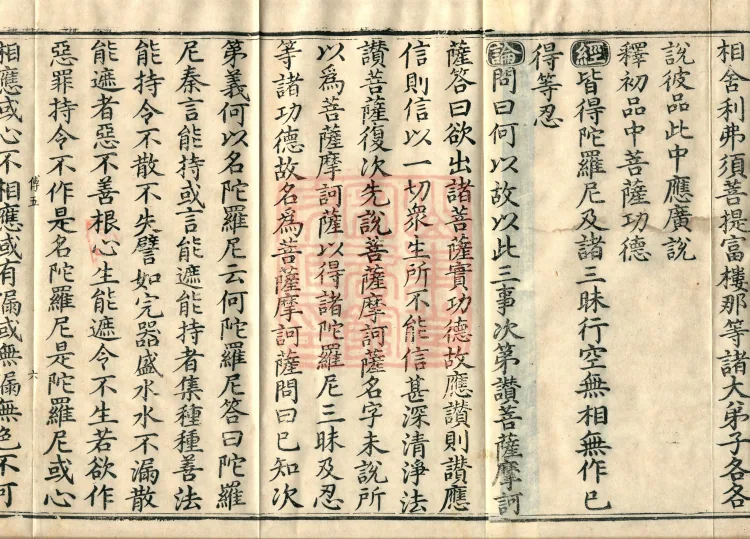 相舍利弗須菩提富樓那等諸大弟子各各
說彼品此中應廣說
釋初品中菩薩功德
經皆得陀羅尼及諸三昧行空無相無作已
得等忍
論問曰何以故以此三事次第讃菩薩摩訶
薩答曰欲出諸菩薩實功德故應讃則讃應
信則信以一切衆生所不能信甚深清淨法
讃菩薩復次先說菩薩摩訶薩名字未說所
以爲菩薩摩訶薩以得諸陀羅尼三昧及忍
等諸功德故名爲菩薩摩訶薩問曰已知次
第義何以名陀羅尼云何陀羅尼答曰陀羅
尼秦言能持或言能遮能持者集種種善法
能持令不散不失譬如完器盛水水不漏散
能遮者惡不善根心生能遮令不生若欲作
惡罪持令不作是名陀羅尼是陀羅尼或心
傅五
六
相應或心不相應或有漏或無漏無色不可